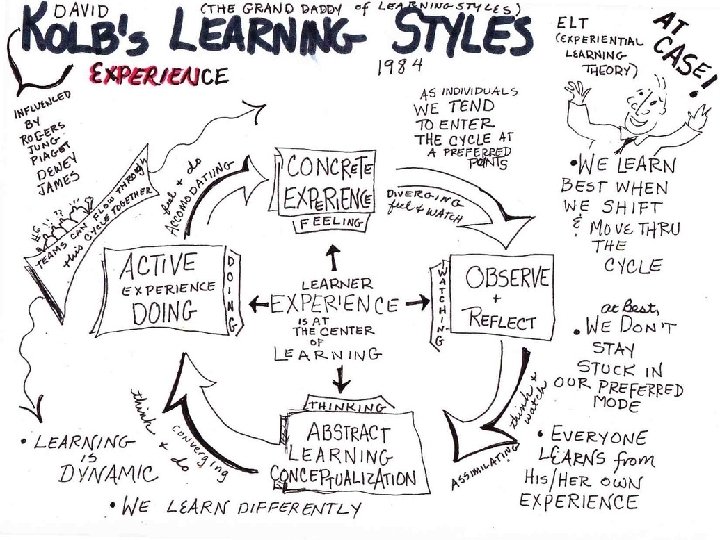 DAVID
(THE GRAND DADDY of LEARNING STYLES)
KOLB's LEARNING STYLES
EXPERIENCE
1984
ELT
(EXPERIENTIAL
LEARNING
THEORY)
AT
CASE!
INFLUENCED
BY
ROGERS
JUNG
PIAGET
DEWEY
JAMES
TEAMS CAN FLOW THROUGH
this CYCLE TOGETHER
AS INDIVIDUALS
WE TEND
TO ENTER
THE CYCLE AT
A PREFERRED
POINTS
feel + do
ACCOMODATIING
CONCRETE
EXPERIENCE
FEELING
DIVERGING
feel & WATCH
• WE LEARN
BEST WHEN
WE SHIFT
& MOVE THRU
THE
CYCLE
ACTIVE
EXPERIENCE
DOING
DOING
LEARNER
EXPERIENCE
IS AT
THE CENTER
OF
LEARNING
WATCHING
OBSERVE
+
REFLECT
at Best,
• WE DON'T
STAY
STUCK IN
OUR PREFERRED
MODE
think + do
converging
THINKING
ABSTRACT
LEARNING
CONCEPTUALIZATION
think + watch
ASSIMILATING
• LEARNING
IS
DYNAMIC
• EVERYONE
LEARNS from
HIS/HER OWN
EXPERIENCE
• WE LEARN DIFFERENTLY